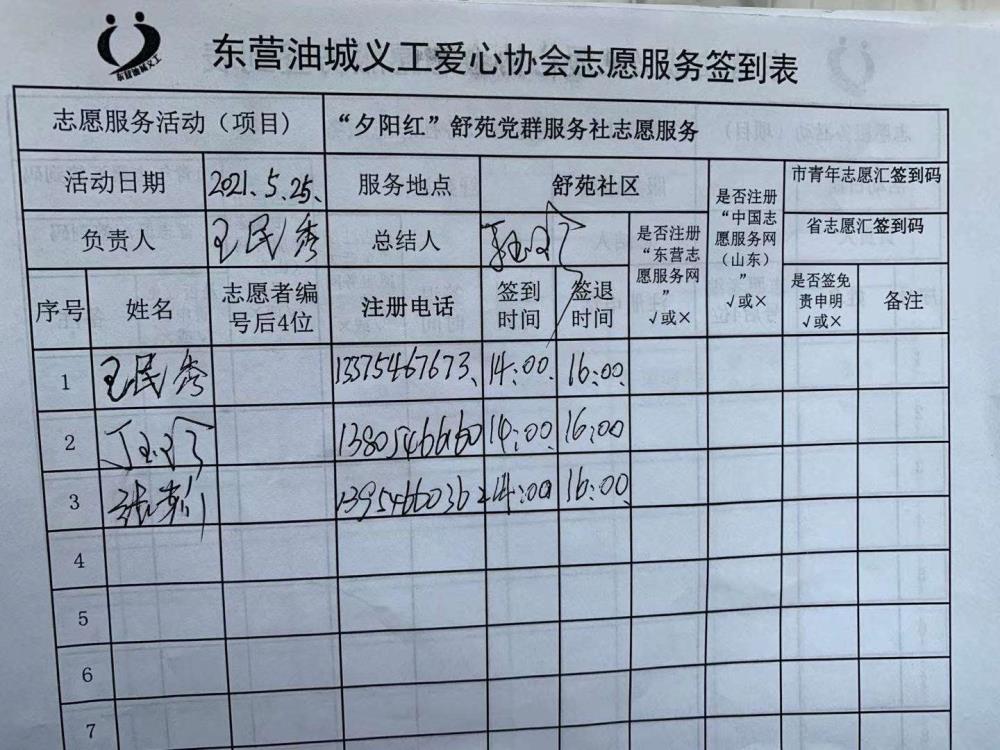 东营油城义工
东营油城义工爱心协会志愿服务签到表
志愿服务活动（项目） “夕阳红”舒苑党群服务社志愿服务
活动日期 2021.5.25. 服务地点 舒苑社区
市青年志愿汇签到码
负责人 王民秀 总结人
省志愿汇签到码
是否注册“东营志愿服务网”√或×
是否注册“中国志愿服务网（山东）”√或×
序号 姓名 志愿者编号后4位 注册电话 签到时间 签退时间 是否签免责申明√或× 备注
1 王民秀 13375467673、 14:00 16:00
2 14:00 16:00
3 13954660362 14:00 16:00
4
5
6
7